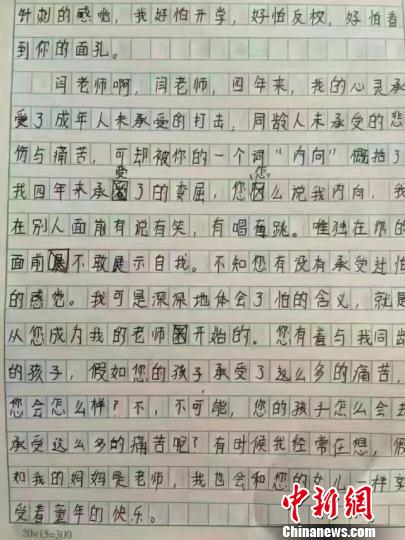 针刺的感觉，我好怕开学，好怕反校，好怕看
到你的面孔。
闫老师啊，闫老师，四年来，我的心灵承
受了成年人未承受的打击，同龄人未承受的悲
伤与痛苦，可却被你的一个词“内向”概括了
我四年来承受了的委屈，您怎么说我内向，我
在别人面前有说有笑，有唱有跳。唯独在你的
面前不敢展示自我。不知您有没有承受过怕
的感觉。我可是深深地体会了怕的含义，就是
从您成为我的老师开始的。您有着与我同龄
的孩子，假如您的孩子承受了这么多的痛苦，
您会怎么样？不，不可能，您的孩子怎么会去
承受这么多的痛苦呢？有时候我经常在想，假
如我的妈妈是老师，我也会和您的女儿一样享
受着童年的快乐。
20×15=300
中新网
Chinanews.com